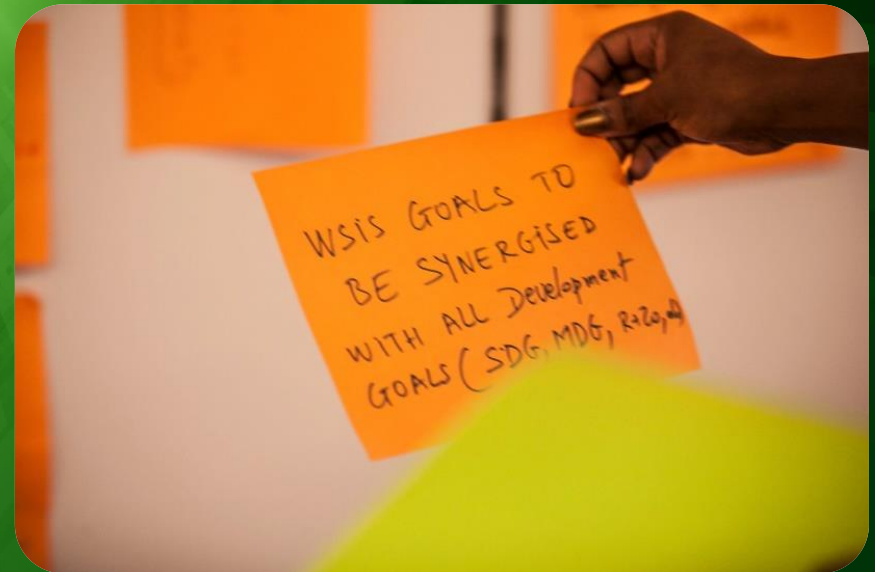 WSIS GOALS TO
BE SYNERGISED
WITH ALL Development
GOALS (SDG, MDG, R+20,